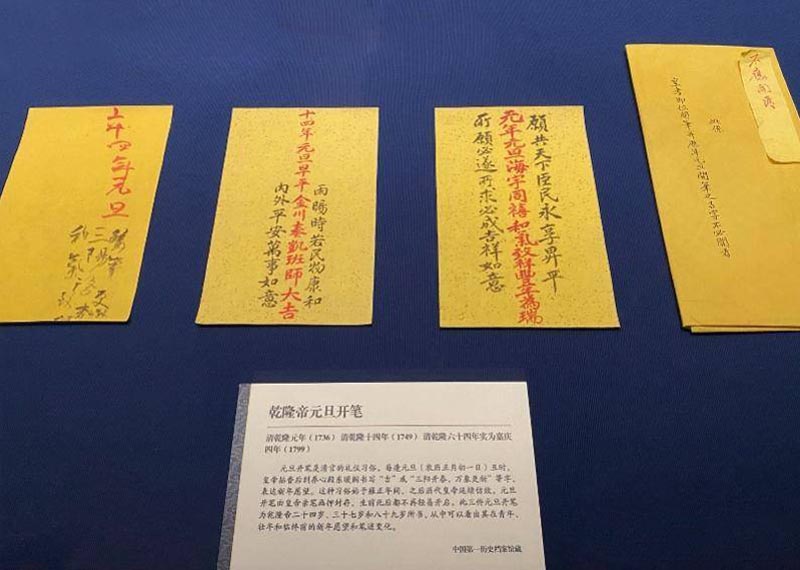 皇考即位開筆并歷年元旦開筆之各字不必開看
願共天下臣民永享昇平
元年元旦海宇同禧和氣致祥豐年為瑞
所願必遂所求必成吉祥如意
雨暘時若民物康和
十四年元旦早平金川奏凱班師大吉
內外平安萬事如意
十四年元旦
乾隆帝元旦开笔
清乾隆元年（1736） 清乾隆十四年（1749） 清乾隆六十四年实为嘉庆
四年（1799）
元旦开笔是清宫的礼仪习俗。每逢元旦（农历正月初一日）丑时，
皇帝拈香后到养心殿东暖阁书写“吉”或“三阳开泰，万象更新”等字，
表达新年愿望。这种习俗始于雍正年间，之后历代皇帝延续仿效。元旦
开笔由皇帝亲笔画押封存，生前死后都不再轻易开启。此三件元旦开笔
为乾隆帝二十四岁、三十七岁和八十九岁所书，从中可以看出其在青年、
壮年和临终前的新年愿望和笔迹变化。
中国第一历史档案馆藏